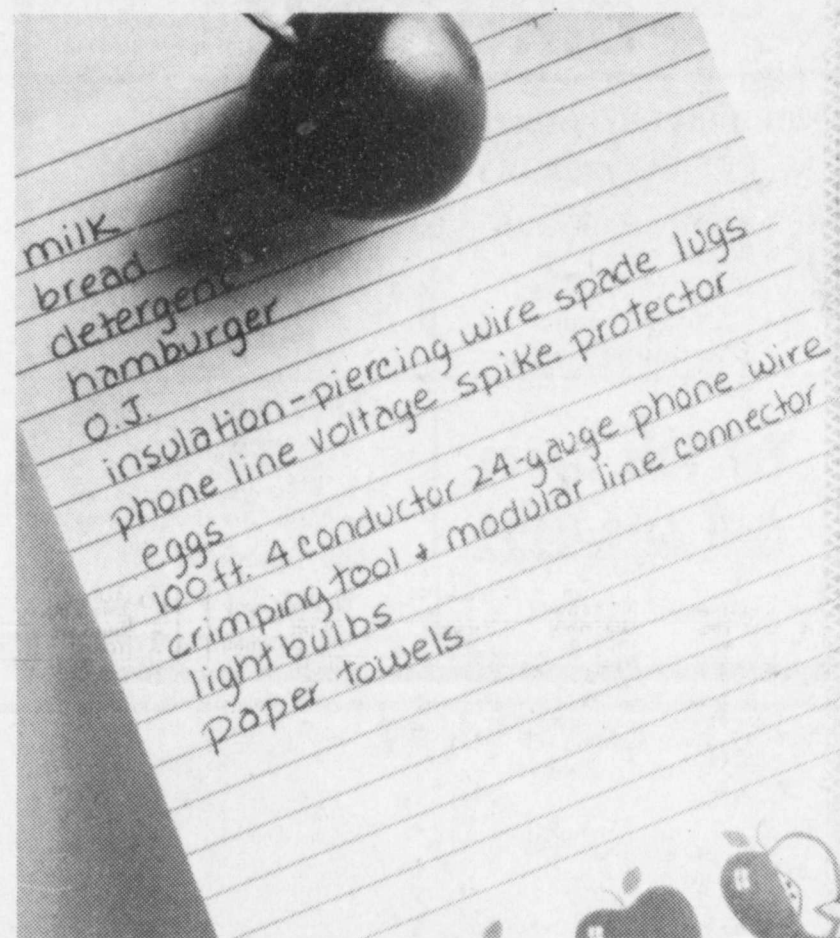 milk
bread
detergent
hamburger
O.J.
insulation-piercing wire spade lugs
phone line voltage spike protector
eggs
100 ft. 4 conductor 24-gauge phone wire
crimping tool + modular line connector
light bulbs
paper towels